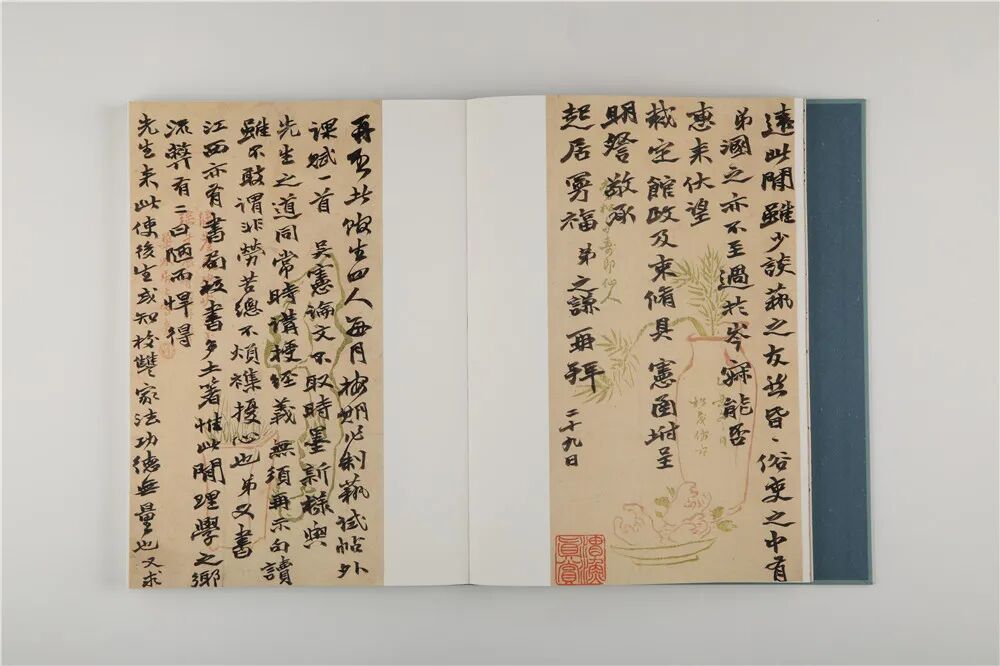 遠此間雖少談藝之友然昏〻俗吏之中有
弟涸之亦不至過於岑寂能否
惠來伏望
裁定館政及束脩具憲函坿呈
明詧敬承
起居曼福 弟之謙再拜
二十九日
再 此 生四人每月按期作制藝試帖外
課賦一首 吳憲論文不取時墨新樣與
先生之道同常時講 經義無須再示句讀
雖不敢謂非勞苦總不煩襍 心也弟又書
江西亦有書局校書多土著惟此間理學之鄉
流弊有二曰陋而悍得
先生來此使後生或知校讐家法功德無量也又求